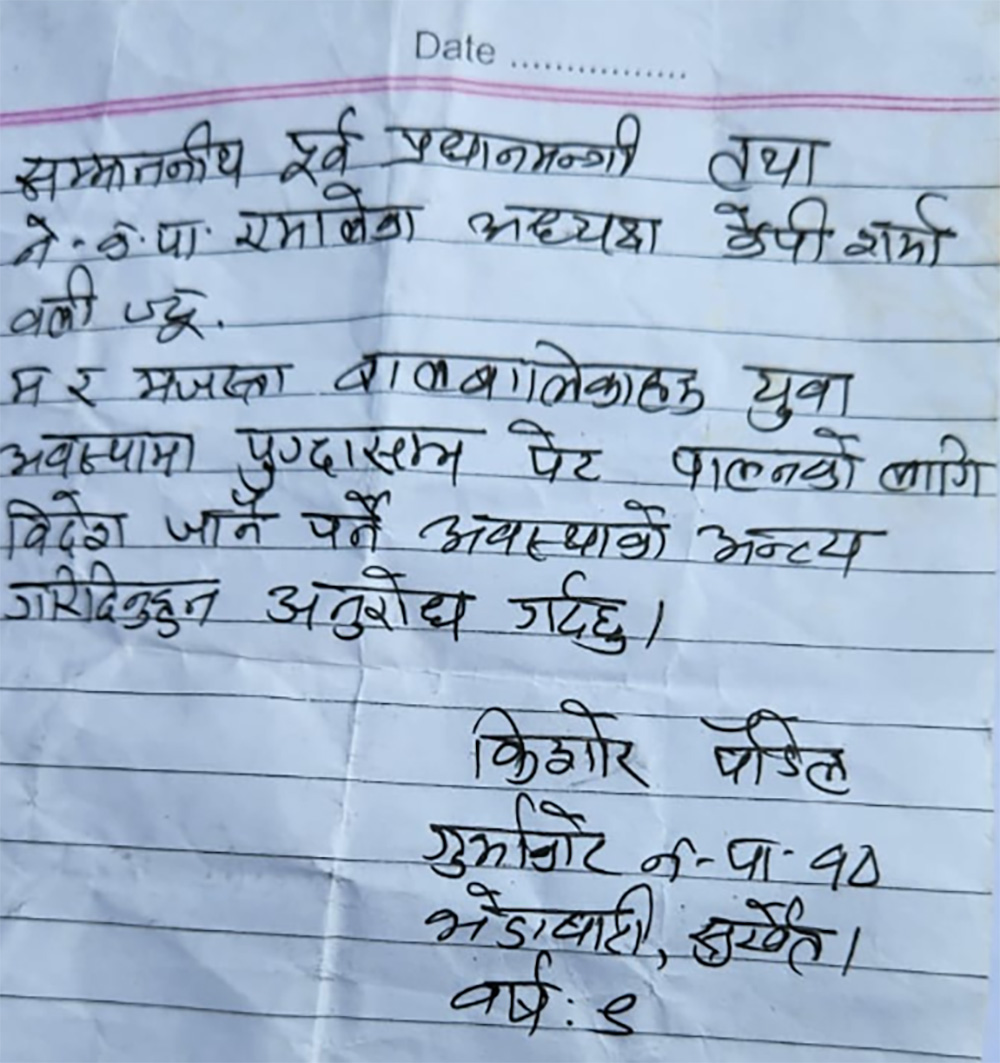 Date ................
सम्माननीय पूर्व प्रधानमन्त्री तथा
ने.क.पा. एमालेका अध्यक्ष केपी शर्मा
वली ज्यू.
म र मजस्ता बालबालिकाहरु युवा
अवस्थामा पुग्दासम्म पेट पालनको लागि
विदेश जानै पर्ने अवस्थाको अन्त्य
गरिदिनुहुन अनुरोध गर्दछु।
किशोर पौडेल
गुर्भाकोट न.पा. १०
भेडाबारी, सुर्खेत।
वर्ष: ९